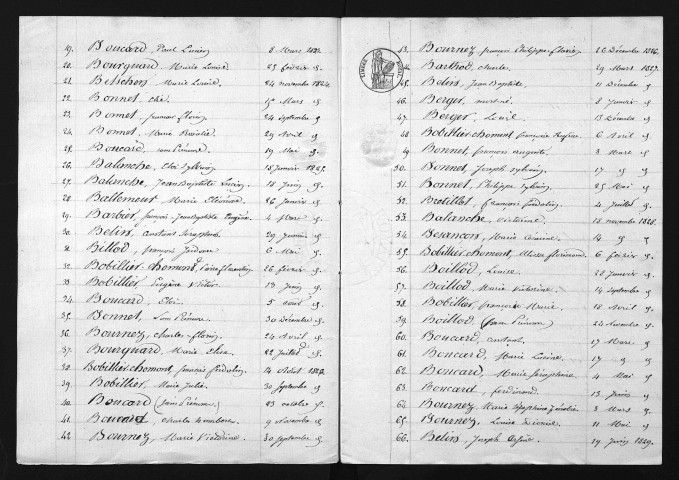 19. Boucard, Paul Lucien 8 Mars
20. Bourquard, Marie Louise 25 février d°.
21. Besschers, Marie Louise 24 novembre 1824.
22. Bonnet, Eloi 1er Mars d°.
23. Bonnet, françois florin 24 septembre d°.
24. Bonnet, Marie 29 Avril d°.
25. Boucard, sans Prénoms 19 Mai d°.
26. Balanche, Eloi Sylvain 15 janvier 1825.
27. Balanche, Jean Baptiste Lucien 18 juin d°.
28. Ballemeur Marie 26 janvier d°.
29. Barbier, françois Jean Baptiste Eugène 4 Mars d°.
30. Belin, constant Séraphin 29 janvier d°.
31. Billod, françois 6 Mai d°.
32. Bobillier-chomont, 26 février d°.
33. Bobillier, Eugène Victor 13 juin d°.
34. Boucard, Eloi 5 aout d°.
35. Bonnet, Sans Prénoms 30 Décembre d°.
36. Bournez, charles florin 24 Avril d°.
37. Bourquard, Marie Elise 22 Juillet d°.
38. Bobillier-chomont, françois fidelin 14 1826.
39. Bobillier, Marie Julie 30 septembre d°.
40. Boucard (Sans Prénoms) 23 octobre d°.
41. Boucard, charles 9 novembre d°.
42. Bournez, Marie Victorine 30 septembre d°.
43. Bournez, françois Philippe florin 26 Décembre 1826.
44. Barthod, charles 29 Mars 1827.
45. Belin, Jean Baptiste 11 Décembre d°.
46. Berger, mort-né 8 janvier d°.
47. Berger, Louise 13 Décembre d°.
48. Bobillier-chomont, françoise 6 Avril d°.
49. Bonnet, françois auguste 3 Mars d°.
50. Bonnet, Joseph Sylvain 17 d° d°.
51. Bonnet, Philippe Sylvain 25 Mai d°.
52. françois fidelin 4 Juillet d°.
53. Balanche, Victorine 18 novembre 1828.
54. Besançon, Marie 14 d° d°.
55. Bobillier-chomont, 6 février d°.
56. Boillod, Louise 28 Janvier d°.
57. Boillod, Marie Victorine 14 septembre d°.
58. Bobillier, françoise Marie 18 Avril d°.
59. Boillod, (Sans Prénoms) 22 Novembre d°.
60. Boucard, constant 17 Mars d°.
61. Boucard, Marie Lucine 17 d° d°.
62. Boucard, Marie Séraphine 4 Mai d°.
63. Boucard, ferdinand 13 juin d°.
64. Bournez, Marie Joséphine 3 Mars d°.
65. Bournez, Louise 11 Mai d°.
66. Belin, Joseph 19 Juin 1829.